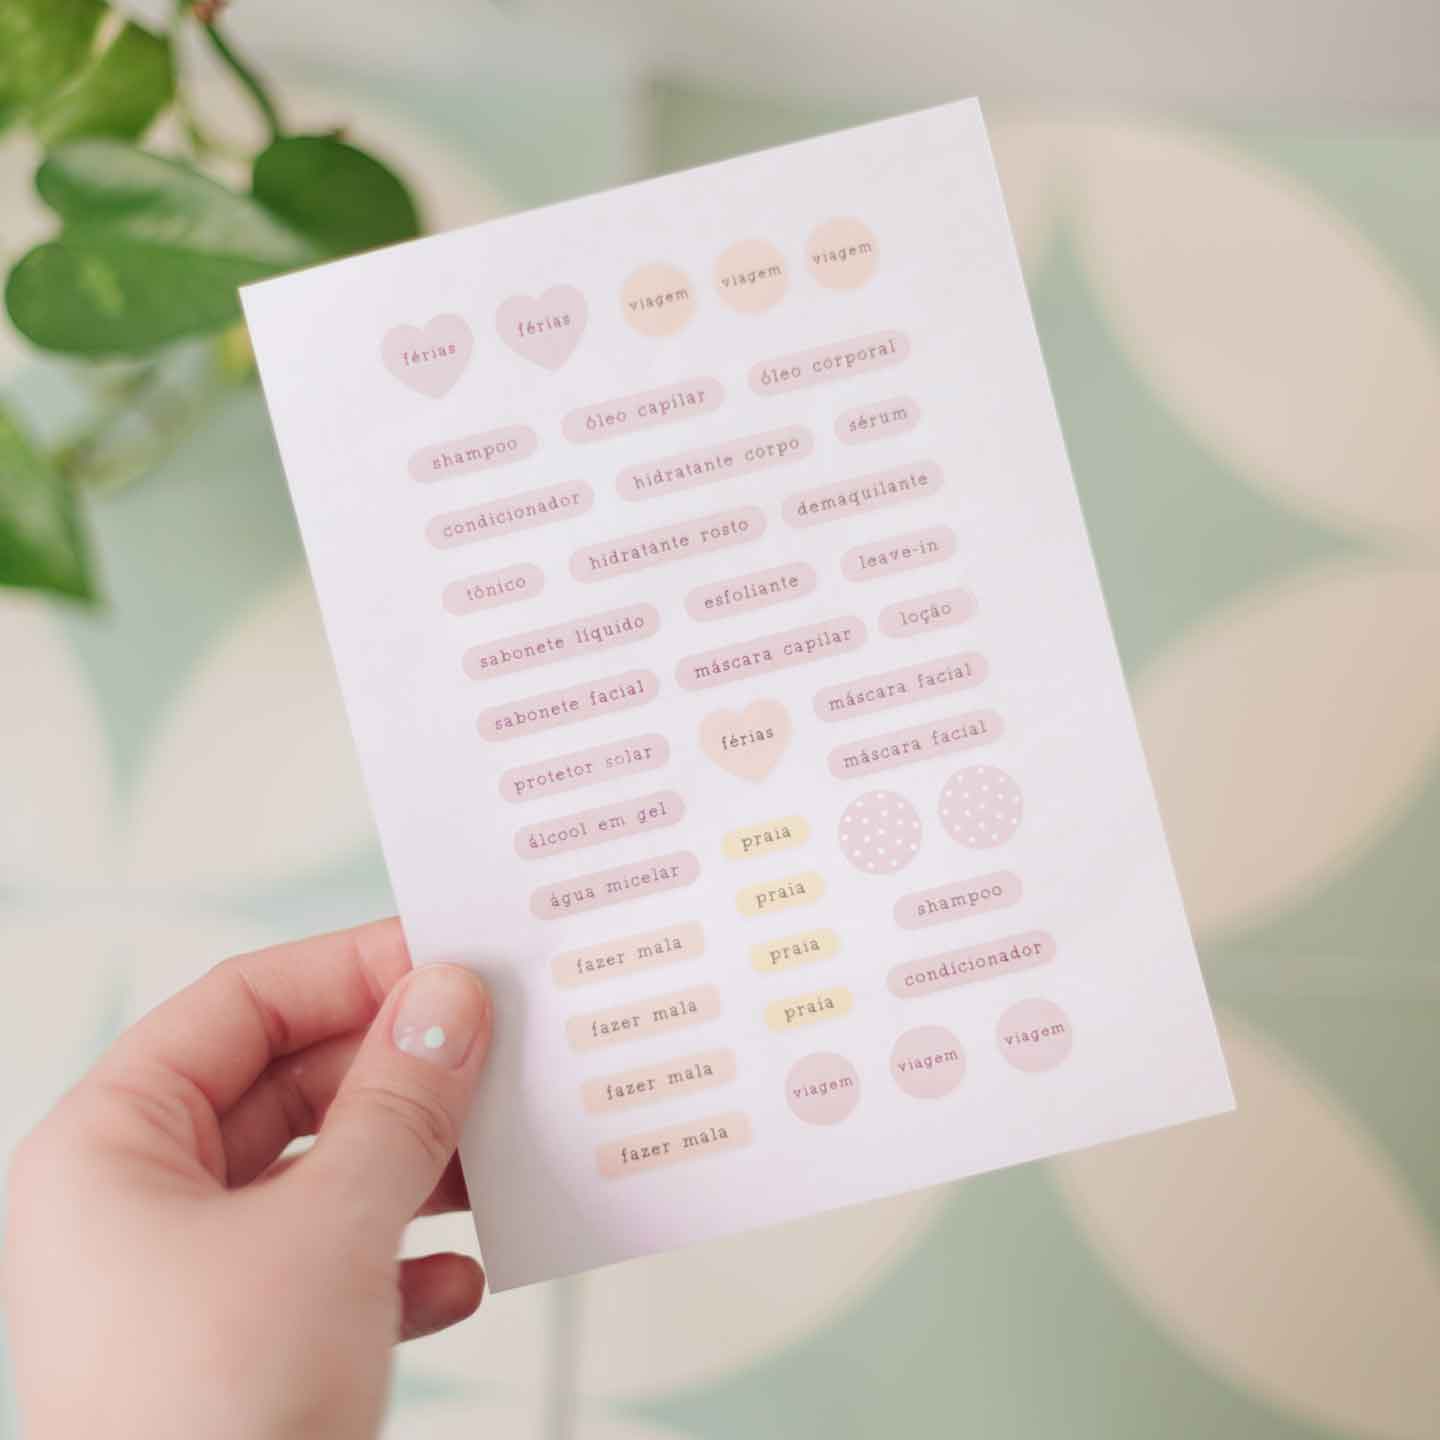 férias férias viagem viagem viagem
shampoo óleo capilar óleo corporal
condicionador hidratante corpo sérum
tônico hidratante rosto demaquilante
sabonete líquido esfoliante leave-in
sabonete facial máscara capilar loção
protetor solar férias máscara facial
álcool em gel praia máscara facial
água micelar praia shampoo
fazer mala praia condicionador
fazer mala praia
fazer mala viagem viagem viagem
fazer mala